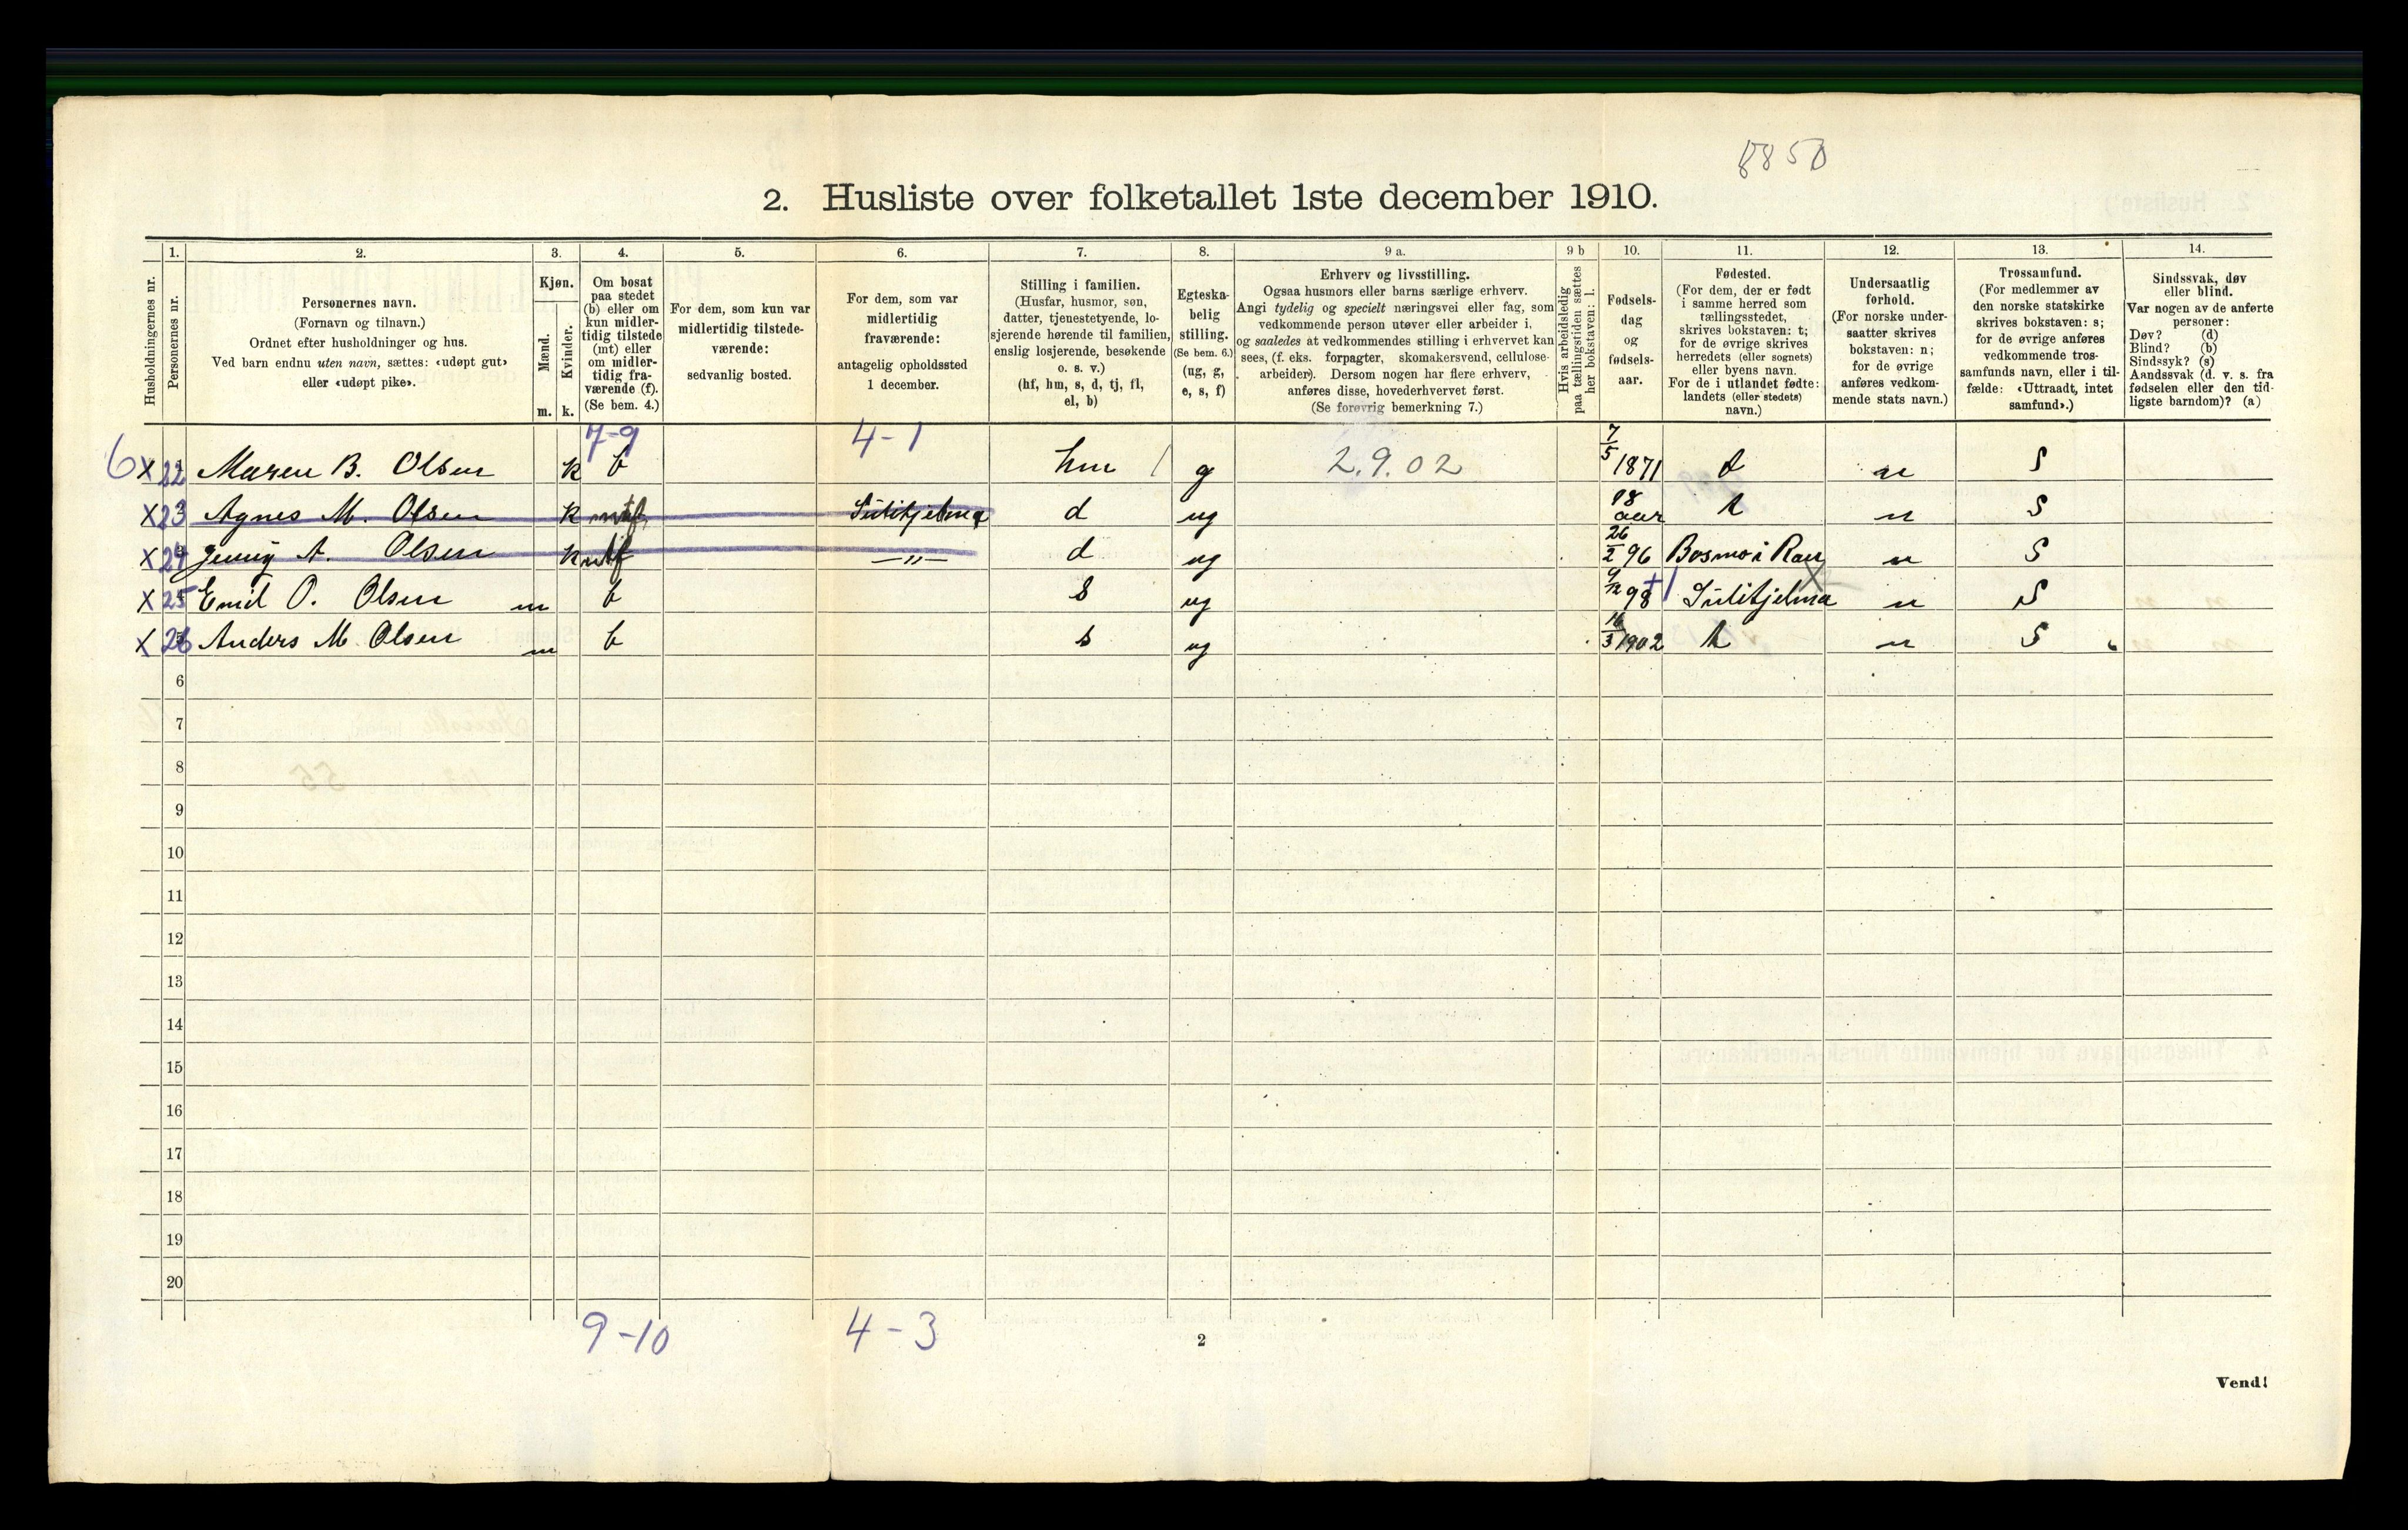 8850
2. Husliste over folketallet 1ste december 1910.
Husholdningernes nr.
1.
Personernes nr.
2.
Personernes navn.
(Fornavn og tilnavn.)
Ordnet efter husholdninger og hus.
Ved barn endnu uten navn, sættes: «udøpt gut»
eller «udøpt pike».
3.
Kjøn.
Mænd.
Kvinder.
m. k.
4.
Om bosat
paa stedet
(b) eller om
kun midler-
tidig tilstede
(mt) eller
om midler-
tidig fra-
værende (f).
(Se bem. 4.)
5.
For dem, som kun var
midlertidig tilstede-
værende:
sedvanlig bosted.
6.
For dem, som var
midlertidig
fraværende:
antagelig opholdssted
1 december.
7.
Stilling i familien.
(Husfar, husmor, søn,
datter, tjenestetyende, lo-
sjerende hørende til familien,
enslig losjerende, besøkende
o. s. v.)
(hf, hm, s, d, tj, fl,
el, b)
8.
Egteska-
belig
stilling.
(Se bem. 6.)
(ug, g,
e, s, f)
9 a.
Erhverv og livsstilling.
Ogsaa husmors eller barns særlige erhverv.
Angi tydelig og specielt næringsvei eller fag, som
vedkommende person utøver eller arbeider i,
og saaledes at vedkommendes stilling i erhvervet kan
sees, (f. eks. forpagter, skomakersvend, cellulose-
arbeider). Dersom nogen har flere erhverv,
anføres disse, hovederhvervet først.
(Se forøvrig bemerkning 7.)
9 b
Hvis arbeidsledig
paa tællingstiden sættes
her bokstaven: l.
10.
Fødsels-
dag
og
fødsels-
aar.
11.
Fødested.
(For dem, der er født
i samme herred som
tællingsstedet,
skrives bokstaven: t;
for de øvrige skrives
herredets (eller sognets)
eller byens navn.
For de i utlandet fødte:
landets (eller stedets)
navn.)
12.
Undersaatlig
forhold.
(For norske under-
saatter skrives
bokstaven: n;
for de øvrige
anføres vedkom-
mende stats navn.)
13.
Trossamfund.
(For medlemmer av
den norske statskirke
skrives bokstaven: s;
for de øvrige anføres
vedkommende tros-
samfunds navn, eller i til-
fælde: «Uttraadt, intet
samfund».)
14.
Sindssvak, døv
eller blind.
Var nogen av de anførte
personer:
Døv? (d)
Blind? (b)
Sindssyk? (s)
Aandssvak (d. v. s. fra
fødselen eller den tid-
ligste barndom)? (a)
7-9 4-1
6 X 22 Maren B. Olsen k b hm / g 2.9.02 7/5 1871 t n S
X 23 Agnes M. Olsen k Sulitjelma d ug 18 aar t n S
X 24 Jenny A. Olsen k —„— d ug 26/2 96 Bosmo i Ran n S
X 25 Emil O. Olsen m b s ug 98 Sulitjelma n S
X 26 Anders M Olsen m b s ug 16/3 1902 t n S
6
7
8
9
10
11
12
13
14
15
16
17
18
19
20
9-10 4-3
2
Vend!